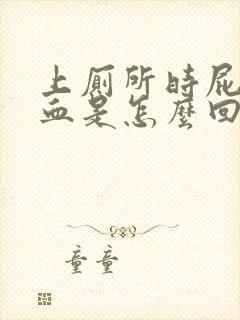 上厕所时屁
血是怎麼回
童童